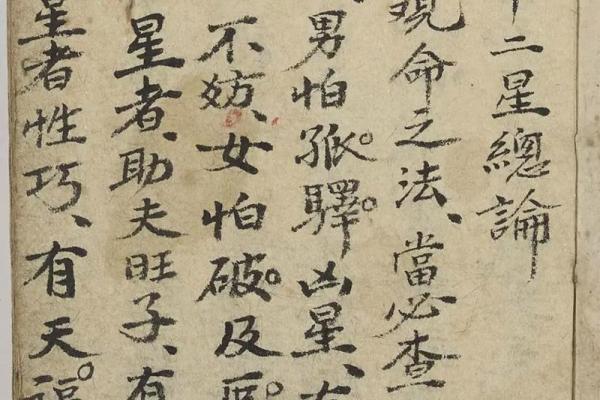 二星總論
观命之法、當必查
男怕孤。驛。凶星、
不妨、女怕破。及
星者、助夫旺子、有
星者性巧、有天。福